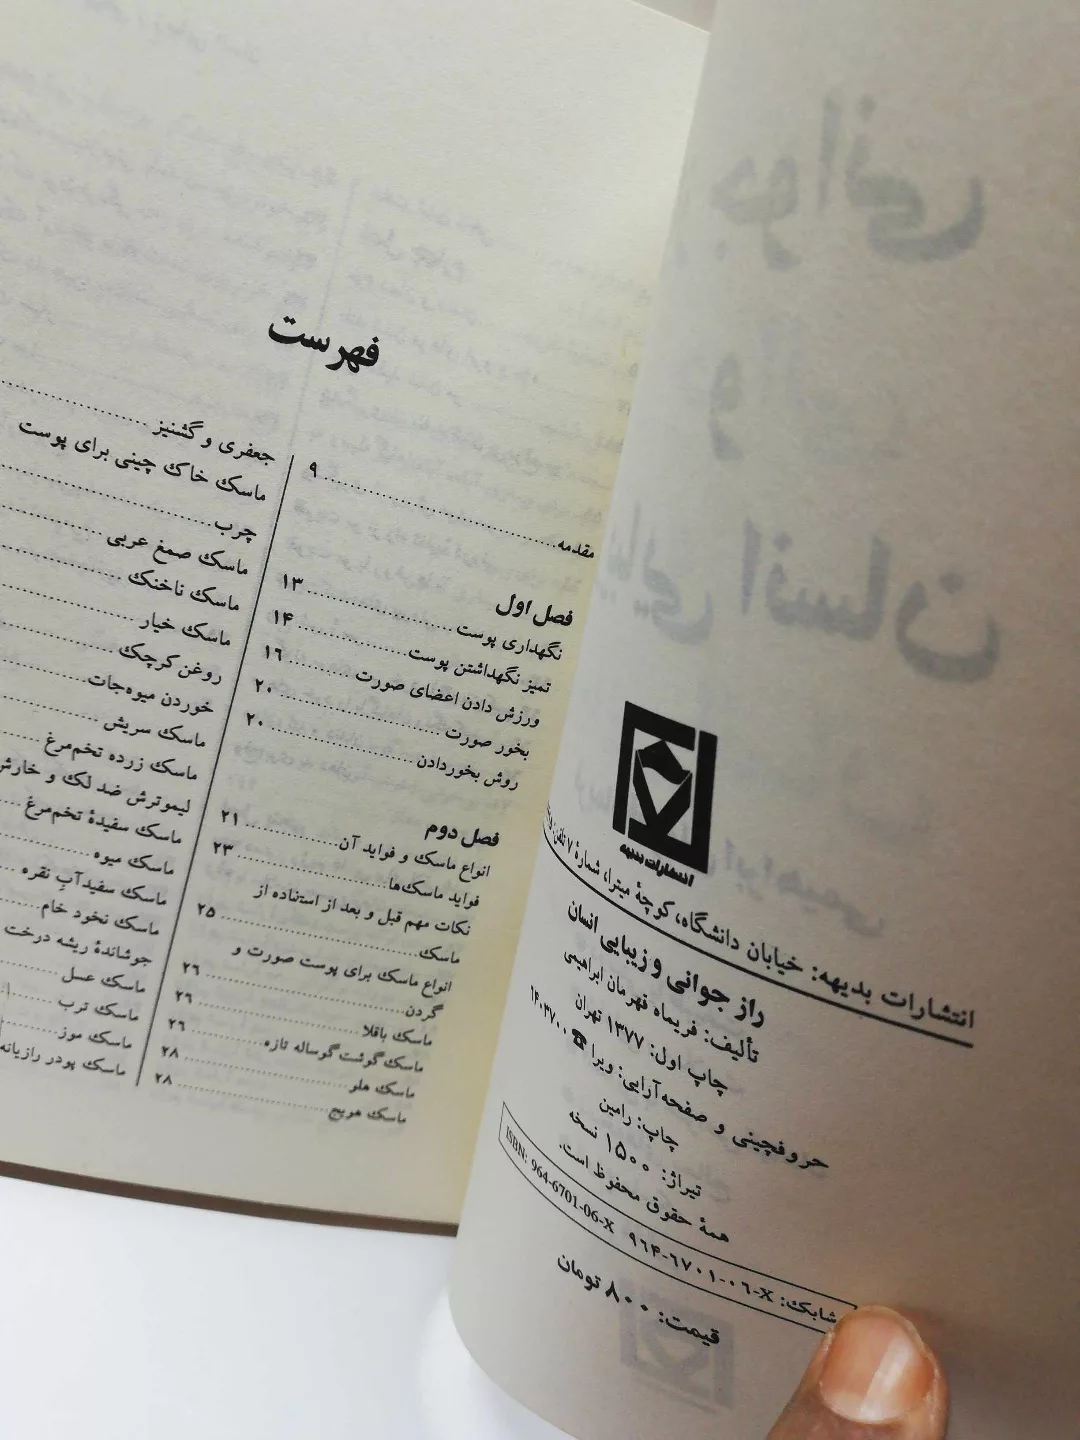 انتشارات بدیهه
انتشارات بدیهه: خیابان دانشگاه، کوچهٔ میترا، شمارهٔ ۷ تلفن:
راز جوانی و زیبایی انسان
تألیف: فریماه قهرمان ابراهیمی
چاپ اول: ۱۳۷۷ تهران
حروفچینی و صفحه‌آرایی: ویرا ☎ ۱۴۰۳۷۰۰
چاپ: رامین
تیراژ: ۱۵۰۰ نسخه
همهٔ حقوق محفوظ است.
شابک: ۹۶۴-۶۷۰۱-۰۶-X ISBN: 964-6701-06-X
قیمت: ۸۰۰ تومان
فهرست
مقدمه ۹
فصل اول
نگهداری پوست ۱۳
تمیز نگهداشتن پوست ۱۴
ورزش دادن اعضای صورت ۱۶
بخور صورت ۲۰
روش بخوردادن ۲۰
فصل دوم
انواع ماسک و فواید آن ۲۱
فواید ماسک‌ها ۲۳
نکات مهم قبل و بعد از استفاده از
ماسک ۲۵
انواع ماسک برای پوست صورت و
گردن ۲۶
ماسک باقلا ۲۶
ماسک گوشت گوساله تازه ۲۶
ماسک هلو ۲۸
ماسک هویج ۲۸
جعفری و گشنیز
ماسک خاک چینی برای پوست
چرب
ماسک صمغ عربی
ماسک ناخنک
ماسک خیار
روغن کرچک
خوردن میوه‌جات
ماسک سریش
ماسک زرده تخم‌مرغ
لیموترش ضد لک و خارش
ماسک سفیدهٔ تخم‌مرغ
ماسک میوه
ماسک سفیدآبِ نقره
ماسک نخود خام
جوشاندهٔ ریشه درخت
ماسک عسل
ماسک ترب
ماسک موز
ماسک پودر رازیانه